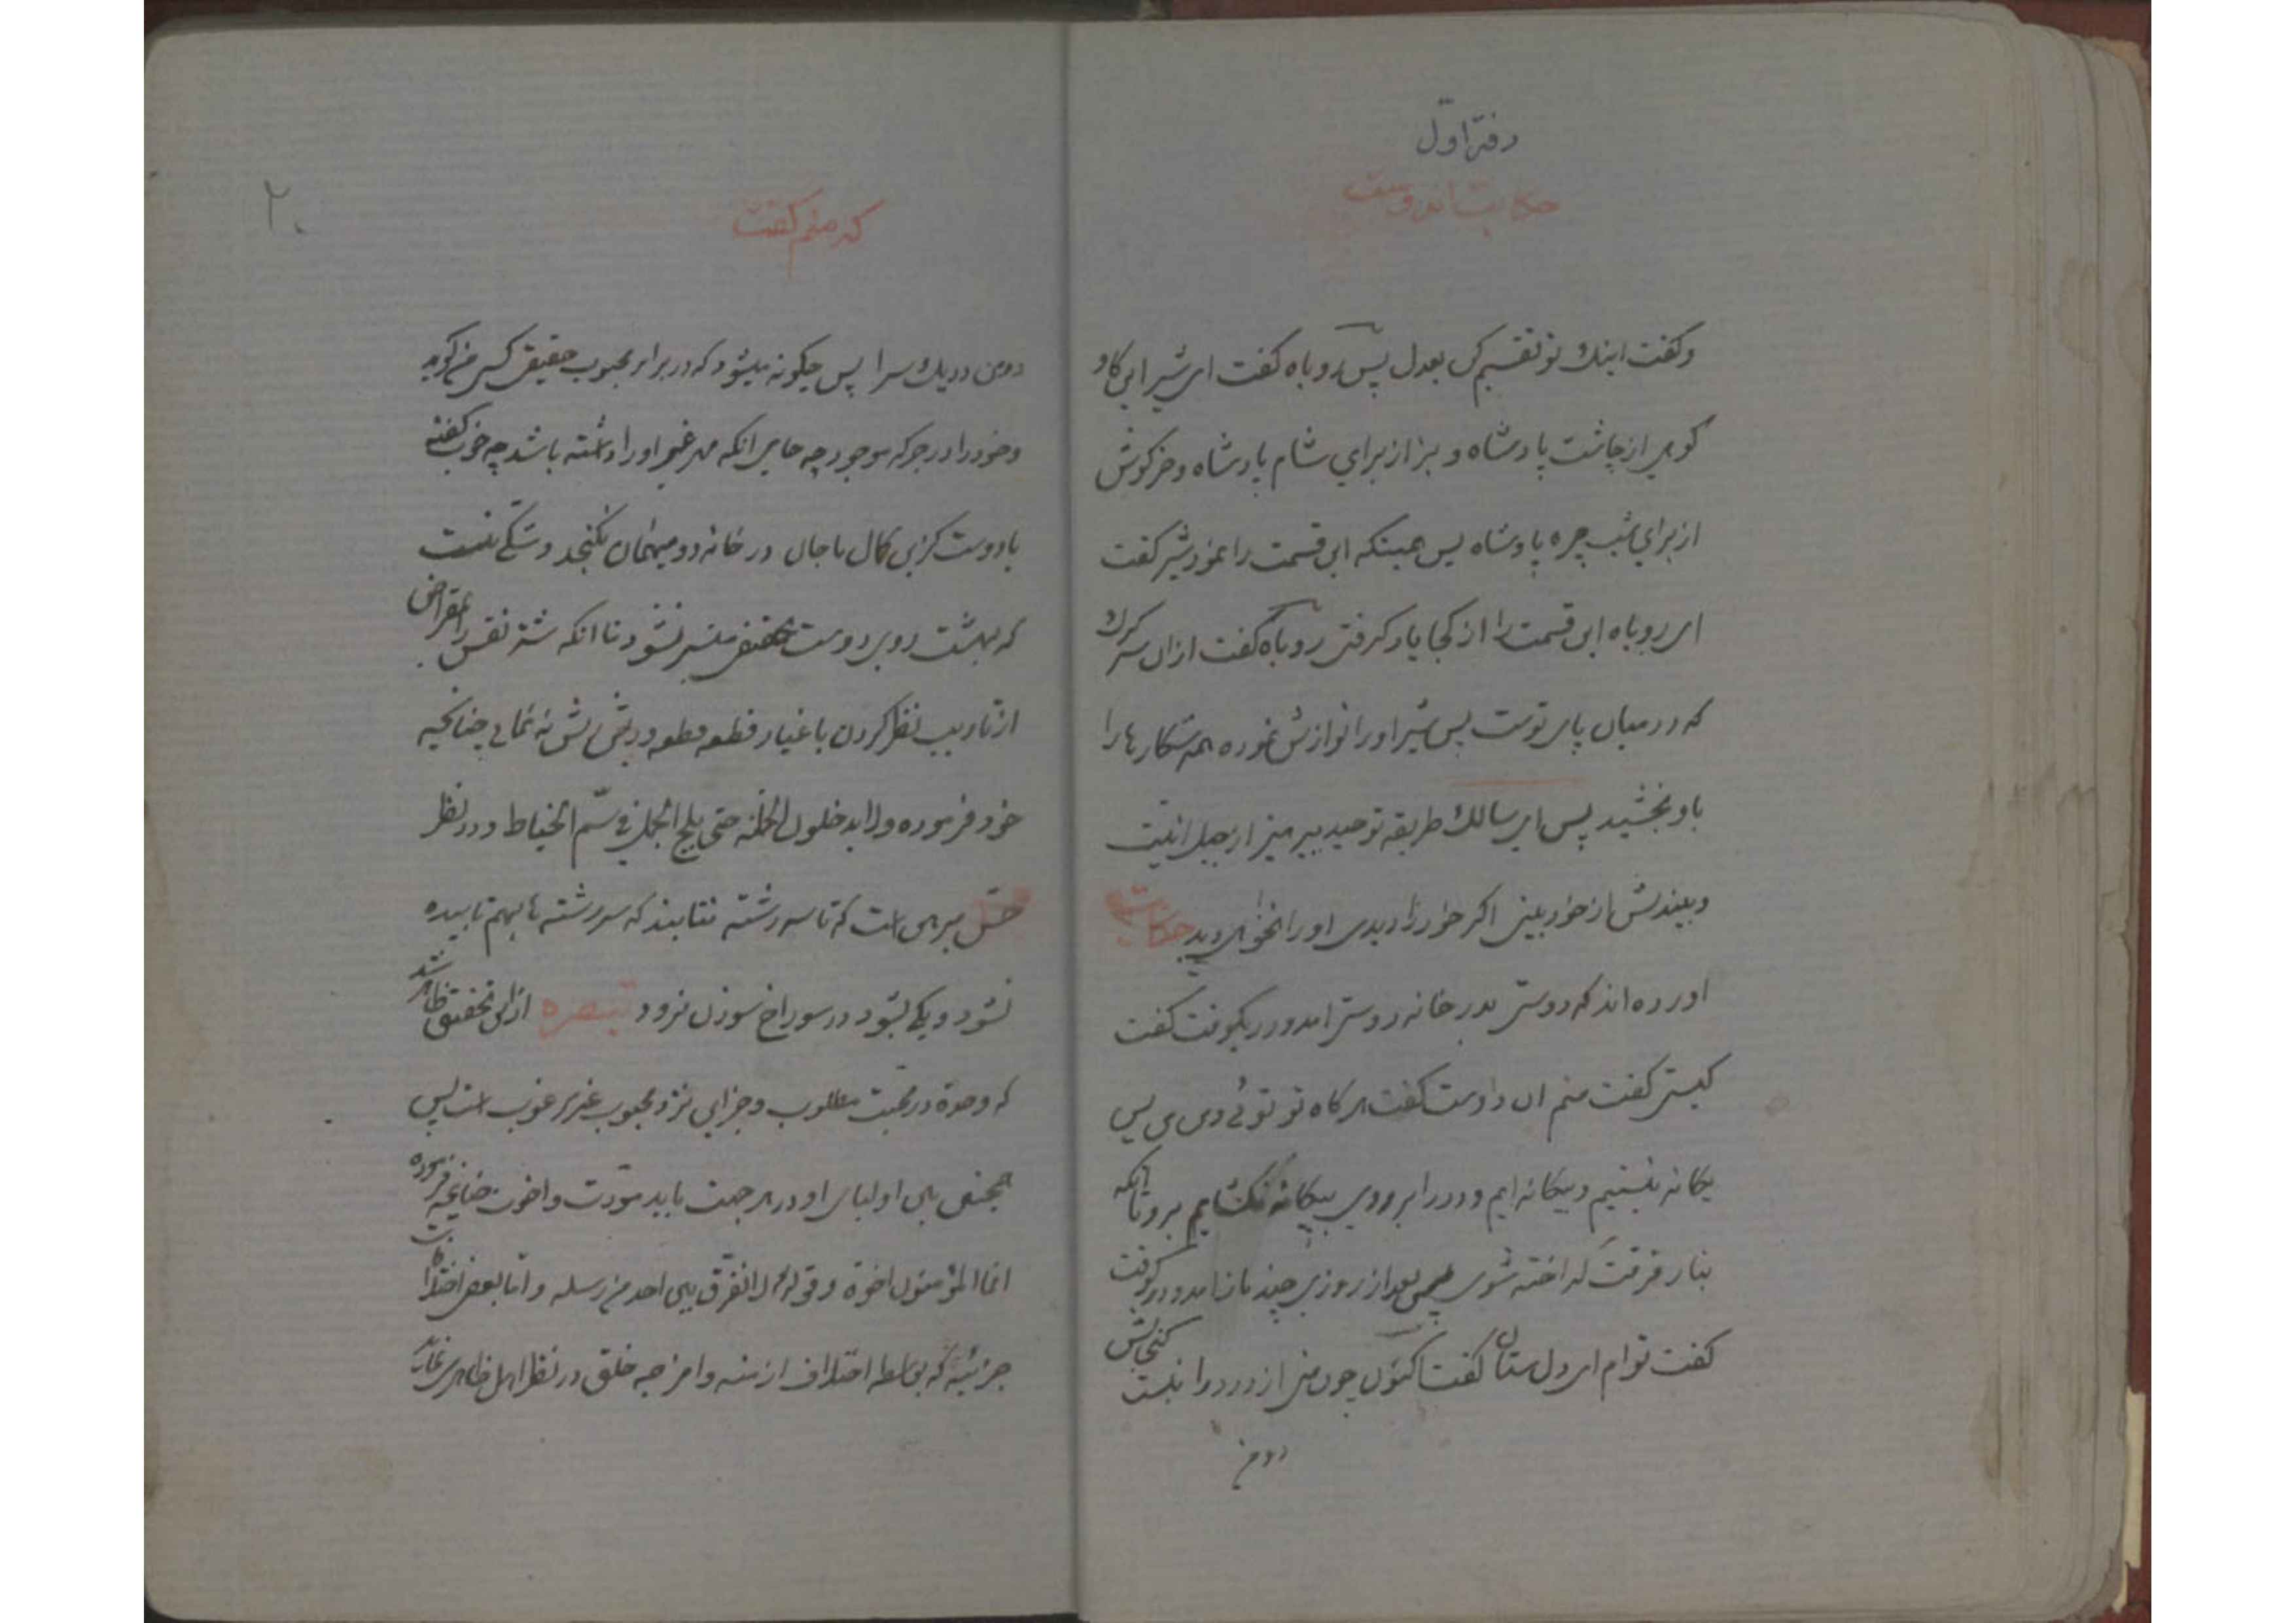 دفتر اول
حکایت اندوست
وکفت اینک تو تقسیم کن بعدل پس روباه کفت ای شیر این کاو
کوهی از چاشت پادشاه و بز از برای شام پادشاه وخرکوش
از برای شب چره پادشاه پس همینکه این قسمت را نمود شیر کفت
ای روباه این قسمت را از کجا یاد کرفتی روباه کفت ازان سر کرک
که در میان پای توست پس شیر اورا نوازش نموده همه شکارها را
باو بخشید پس ای سالک طریقه توحید بپرهیز از جبل انیت
وبیندیش از خود بینی اکر خود را دیدی اورا نخواهی دید حکایت
اورده اند که دوستی بدر خانه دوستی امد ودر بکوفت کفت
کیستی کفت منم ان دوست کفت هر کاه تو توئی ومن من پس
یکانه نیستیم وبیکانه ایم ودر را بروی بیکانه نکشایم برو تا انکه
بنار فرقت کداخته شوی پس بعد از روزی چند باز امد ودر کوفت
کفت توام ای دل ستان کفت اکنون چون منی از در درا نیست کنجایش
دو من
که منم کفت
۲۰
دومن در یک سرا پس چکونه میشود که در برابر محبوب حقیقی کسی من کوید
وخود را در جرکه موجود چه جای انکه مهر غیر اورا داشته باشد چه خوب کفته
با دوست کزین کمال یا جان در خانه دو میهمان نکنجد وشکی نیست
که بهشت روی دوست حقیقی میسر نشود تا انکه شتر نفس را بمقراض
از تادیب نظر کردن باغیار قطعه قطعه وریش ریش نه نمائی چنانچه
خود فرموده ولا یدخلون الجنة حتی یلج الجمل فی سم الخیاط ودر نظر
حس مبرهن است که تا سه رشته نتابند که سر رشته ها بهم تابیده
نشود ویکی نشود در سوراخ سوزن نرود تبصره ازین تحقیق ظاهر شد
که وحدة در محبت مطلوب وجز این نزد محبوب غیر مرغوب است پس
همچنین بین اولیای او در هر جهت باید مودت واخوت چنانچه فرموده
انما المؤمنون اخوة وقوله لا نفرق بین احد من رسله واما بعض اختلافات
جزئیه که بواسطه اختلاف ازمنه وامزجه خلق در نظر اهل ظاهر می نماید